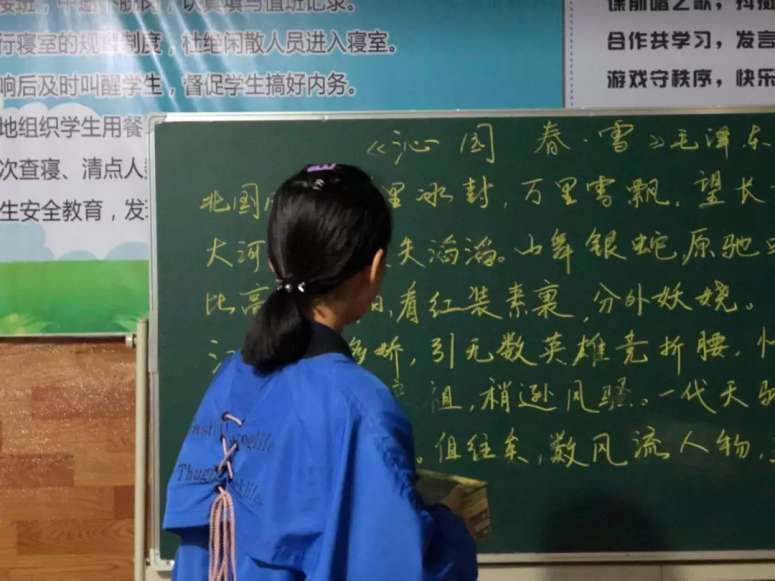 班，中途不脱岗，认真填写值班记录。
行寝室的规章制度，杜绝闲散人员进入寝室。
响后及时叫醒学生，督促学生搞好内务。
地组织学生用餐
次查寝、清点人
生安全教育，发现
合作共学习，发言
游戏守秩序，快乐
《沁园 春·雪》毛泽东
北国 里冰封，万里雪飘，望长
大河 失滔滔。山舞银蛇,原驰
比高 ，看红装素裹，分外妖娆。
娇，引无数英雄竞折腰，惜
祖，稍逊风骚。一代天骄
。俱往矣，数风流人物，